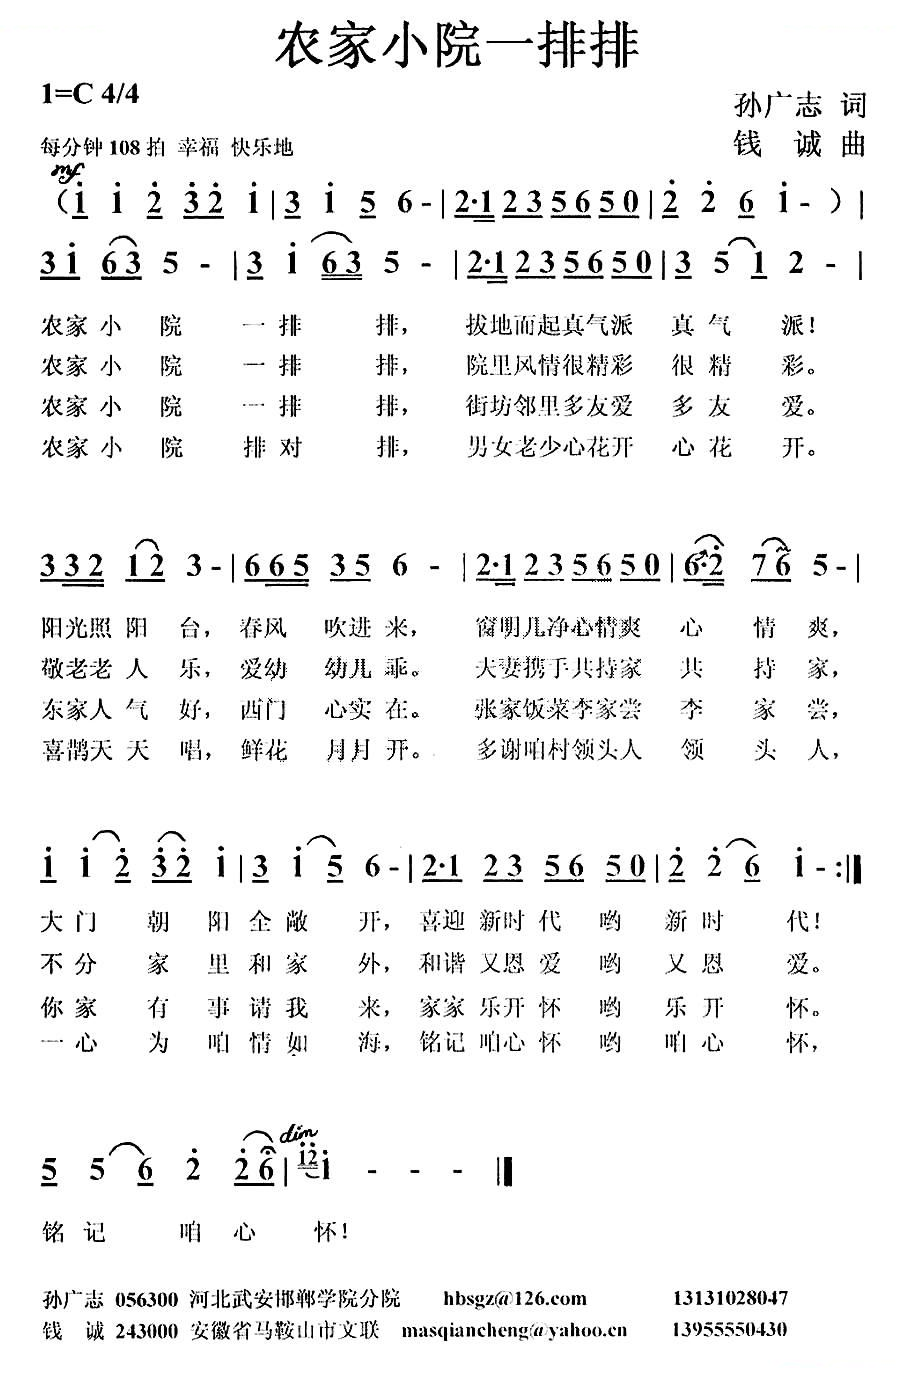 农家小院一排排
1=C 4/4
孙广志 词
每分钟 108 拍 幸福 快乐地
钱 诚 曲
mf
(i i 2 32 i | 3 i 5 6 - | 2·1 235650 | 2 2 6 i - ) |
3i 63 5 - | 3 i 63 5 - | 2·1 235650 | 3 51 2 - |
农家 小 院 一 排 排， 拔地而起真气派 真 气 派！
农家 小 院 一 排 排， 院里风情很精彩 很 精 彩。
农家 小 院 一 排 排， 街坊邻里多友爱 多 友 爱。
农家 小 院 排 对 排， 男女老少心花开 心 花 开。
332 12 3 - | 665 35 6 - | 2·1 235650 | 6·2 76 5 - |
阳光照 阳 台， 春风 吹进 来， 窗明几净心情爽 心 情 爽，
敬老老 人 乐， 爱幼 幼儿 乖。 夫妻携手共持家 共 持 家，
东家人 气 好， 西门 心实 在。 张家饭菜李家尝 李 家 尝，
喜鹊天 天 唱， 鲜花 月月 开。 多谢咱村领头人 领 头 人，
i i 2 32 i | 3 i 5 6 - | 2·1 23 56 50 | 2 2 6 i - :||
大 门 朝 阳 全 敞 开， 喜迎 新时 代 哟 新 时 代！
不 分 家 里 和 家 外， 和谐 又恩 爱 哟 又 恩 爱。
你 家 有 事 请 我 来， 家家 乐开 怀 哟 乐 开 怀。
一 心 为 咱 情 如 海， 铭记 咱心 怀 哟 咱 心 怀，
dim
5 5 6 2 26 | i2 i - - - ||
铭 记 咱 心 怀！
孙广志 056300 河北武安邯郸学院分院 hbsgz@126.com 13131028047
钱 诚 243000 安徽省马鞍山市文联 masqiancheng@yahoo.cn 13955550430